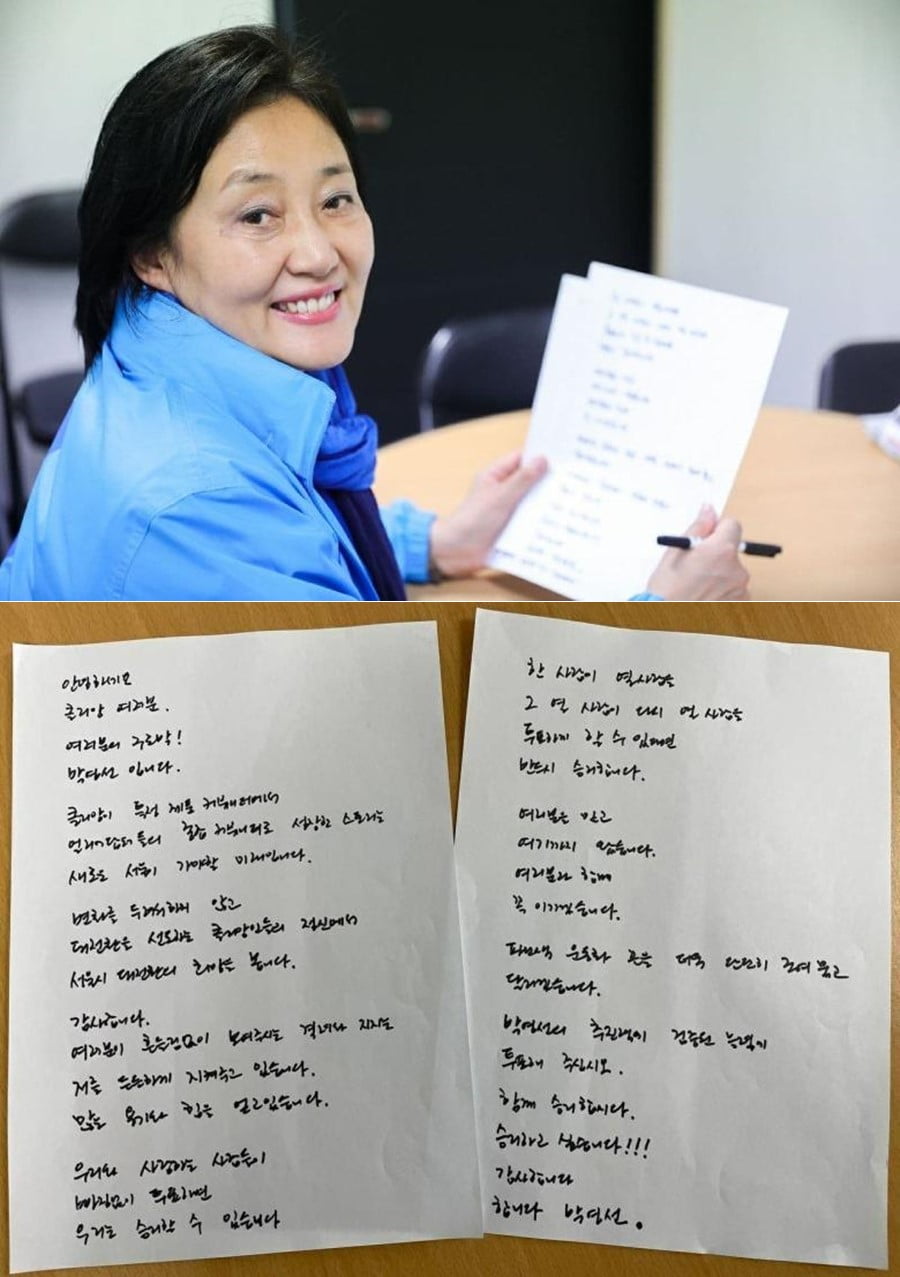 안녕하세요
클리앙 여러분.
여러분의 구로박!
박영선 입니다.
클리앙이 특정 제품 커뮤니티에서
언더그라운드들의 커뮤니티로 성장한 스토리는
새로운 서울이 가야할 미래입니다.
변화를 두려워하지 않고
대전환을 선도하는 클리앙인들의 정신에서
서울시 대전환의 희망을 봅니다.
감사합니다.
여러분이 흔들림없이 보여주시는 격려와 지지는
저를 든든하게 지켜주고 있습니다.
많은 용기와 힘을 얻고있습니다.
우리와 사랑하는 사람들이
빠짐없이 투표하면
우리는 승리할 수 있습니다
한 사람이 열사람을
그 열 사람이 다시 열 사람을
투표하게 할 수 있다면
반드시 승리합니다.
여러분을 믿고
여기까지 왔습니다.
여러분과 함께
꼭 이기겠습니다.
파란색 운동화 끈을 더욱 단단히 조여 묶고
달리겠습니다.
박영선의 추진력에 검증된 능력에
투표해 주십시오.
함께 승리합시다.
승리하고 싶습니다!!!
감사합니다
합니다 박영선.